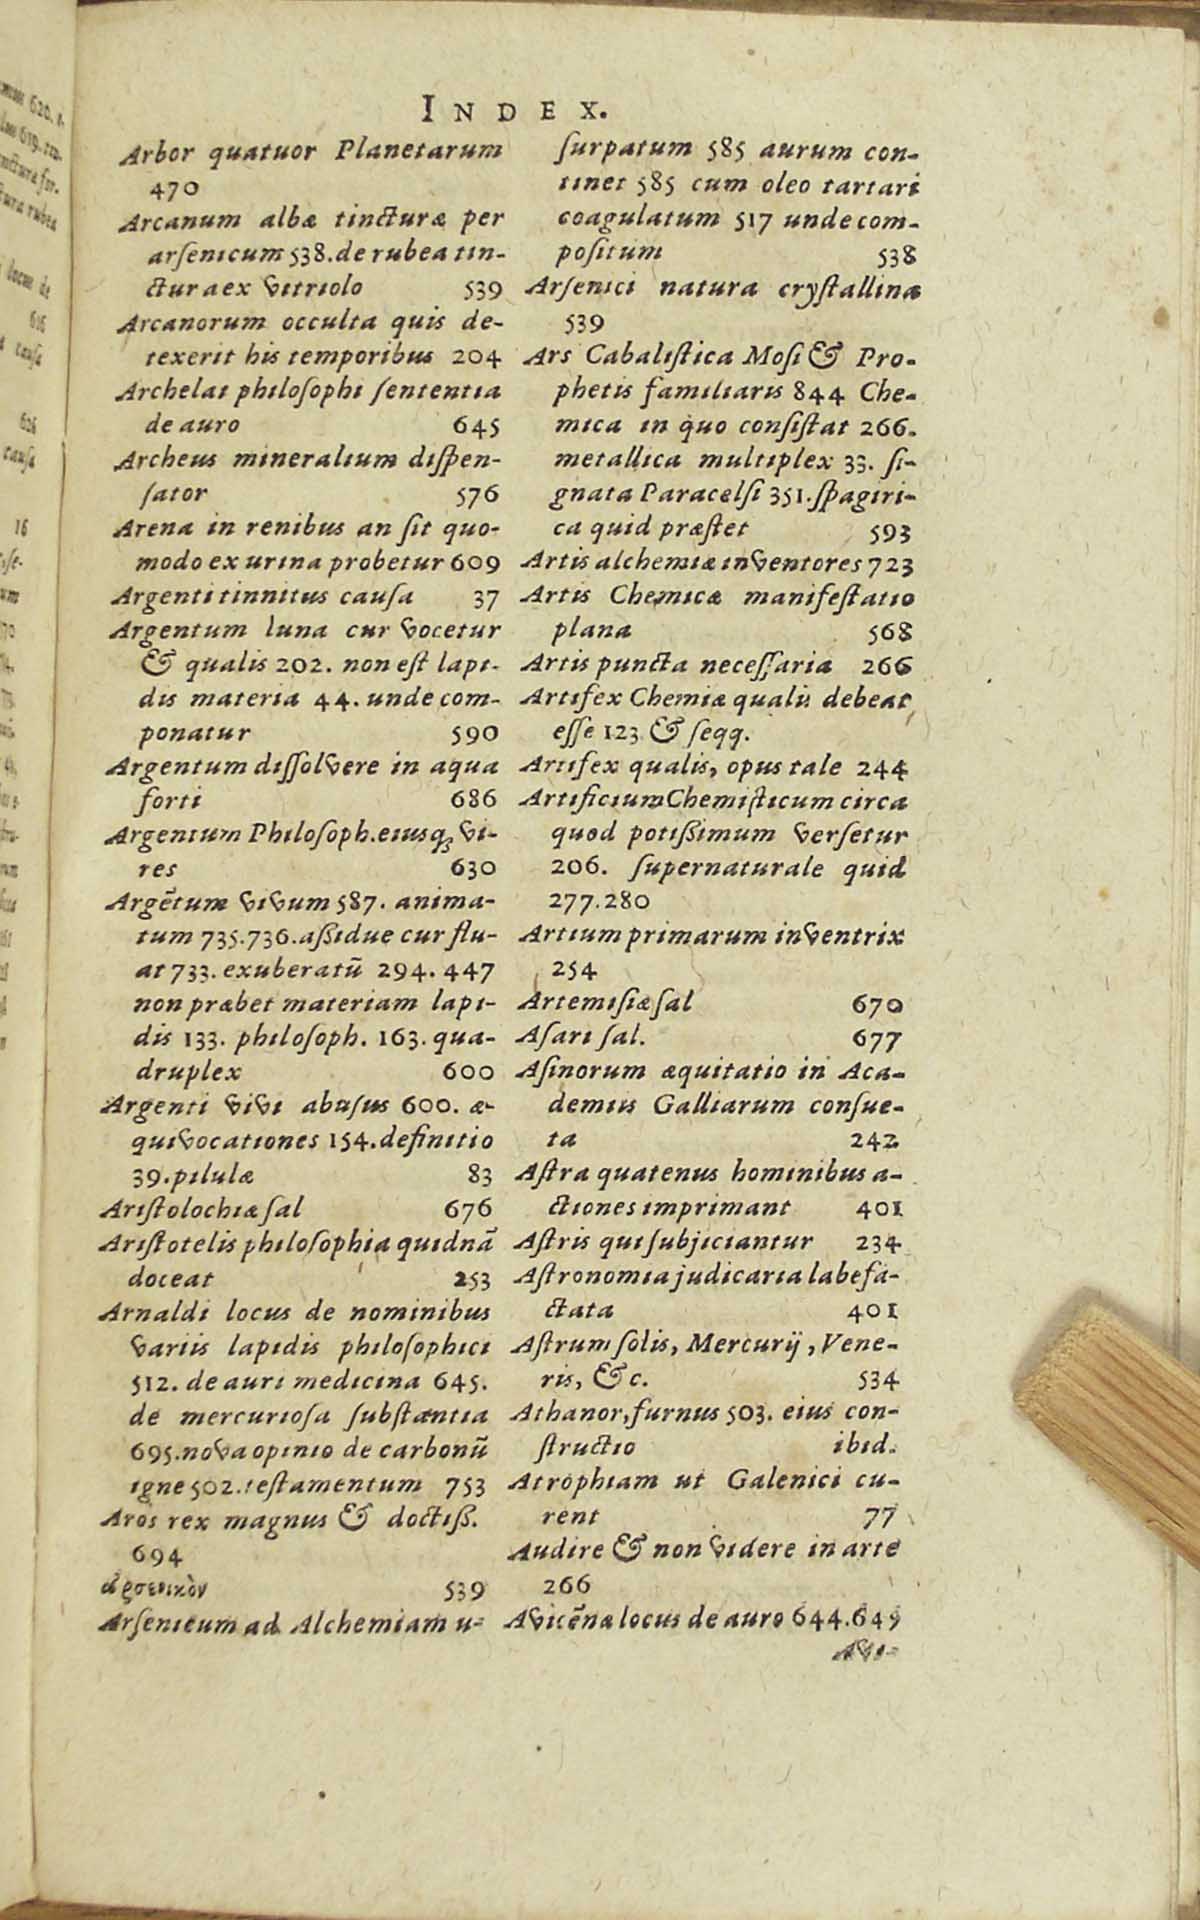 INDEX.
Arbor quatuor Planetarum
470
Arcanum albæ tincturæ per
arſenicum 538. de rubea tin-
ctura ex vitriolo 539
Arcanorum occulta quis de-
texerit his temporibus 204
Archelai philoſophi ſententia
de auro 645
Archeus mineralium diſpen-
ſator 576
Arena in renibus an ſit quo-
modo ex urina probetur 609
Argenti tinnitus cauſa 37
Argentum luna cur vocetur
& qualis 202. non eſt lapi-
dis materia 44. unde com-
ponatur 590
Argentum diſſolvere in aqua
forti 686
Argentum Philoſoph. eiusq́; vi-
res 630
Argẽtum vivum 587. anima-
tum 735.736. aſſidue cur flu-
at 733. exuberatũ 294. 447
non præbet materiam lapi-
dis 133. philoſoph. 163. qua-
druplex 600
Argenti vivi abuſus 600. æ-
quivocationes 154. definitio
39. pilulæ 83
Ariſtolochiæ ſal 676
Ariſtotelis philoſophia quidnã
doceat 253
Arnaldi locus de nominibus
variis lapidis philoſophici
512. de auri medicina 645.
de mercurioſa ſubſtantia
695. nova opinio de carbonũ
igne 502. teſtamentum 753
Aros rex magnus & doctiß.
694
ἀρσενικὸν 539
Arſenicum ad Alchemiam u-
ſurpatum 585 aurum con-
tinet 585 cum oleo tartari
coagulatum 517 unde com-
poſitum 538
Arſenici natura cryſtallina
539
Ars Cabaliſtica Moſi & Pro-
phetis familiaris 844 Che-
mica in quo conſiſtat 266.
metallica multiplex 33. ſi-
gnata Paracelſi 351. ſpagiri-
ca quid præſtet 593
Artis alchemiæ inventores 723
Artis Chemicæ manifeſtatio
plana 568
Artis puncta neceſſaria 266
Artifex Chemiæ qualis debeat
eſſe 123 & ſeqq.
Artifex qualis, opus tale 244
Artificium Chemiſticum circa
quod potißimum verſetur
206. ſupernaturale quid
277.280
Artium primarum inventrix
254
Artemiſiæ ſal 670
Aſari ſal. 677
Aſinorum æquitatio in Aca-
demiis Galliarum conſue-
ta 242
Aſtra quatenus hominibus a-
ctiones imprimant 401
Aſtris qui ſubjiciantur 234
Aſtronomia judicaria labefa-
ctata 401
Aſtrum ſolis, Mercurij, Vene-
ris, &c. 534
Athanor, furnus 503. eius con-
ſtructio ibid.
Atrophiam ut Galenici cu-
rent 77
Audire & non videre in arte
266
Avicẽnæ locus de auro 644.649
Avi-